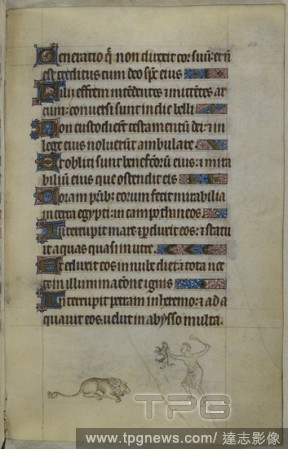 Generatio q̄ non direxit cor suū: et nō
est creditus cum deo sp̄c eius
Filii effrem intēdentes ⁊ mittētes ar
cum: conuersi sunt in die belli
Non custodierūt testamentū dei: ⁊ in
lege eius noluerūt ambulare
Et obliti sunt benefc̄orū eius: ⁊ mira
biliū eius que ostendit eis
Coram pr̄ib: eorum fecit mirabilia
in terra egypti: in campo theneos
Interrupit mare ⁊ pduxit eos: ⁊ statu
it aquas quasi in utre.
Et eduxit eos in nube diei: ⁊ tota noc
te in illuminat̄one ignis
Interrupit petram in heremo: ⁊ ada
quauit eos uelut in abysso multa.
TPG
www.tpgnews.com/達志影像